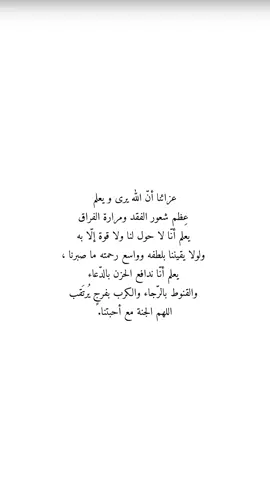 عزائنا أنّ الله يرى و يعلم
عِظم شعور الفقد ومرارة الفراق
يعلم أنّا لا حول لنا ولا قوة إلّا به
ولولا يقيننا بلطفه وواسع رحمته ما صبرنا ،
يعلم أنّنا ندافع الحزن بالدّعاء
والقنوط بالرّجاء والكرب بفرجٍ يُرتَقب
اللهم الجنة مع أحبتنا.